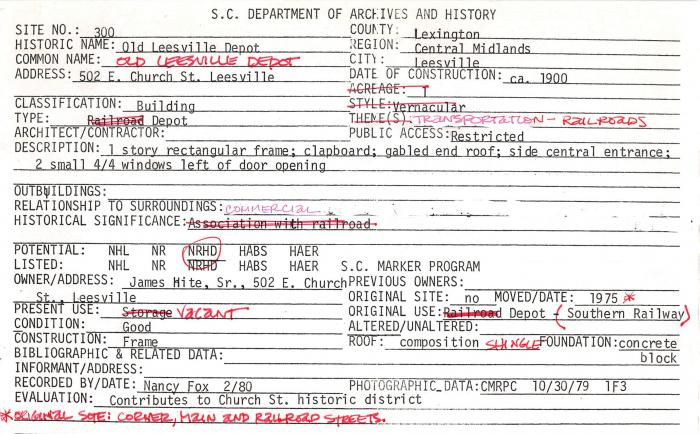 S.C. DEPARTMENT OF ARCHIVES AND HISTORY
SITE NO.: 300 COUNTY: Lexington
HISTORIC NAME: Old Leesville Depot REGION: Central Midlands
COMMON NAME: OLD LEESVILLE DEPOT CITY: Leesville
ADDRESS: 502 E. Church St. Leesville DATE OF CONSTRUCTION: ca. 1900
ACREAGE: 1
CLASSIFICATION: Building STYLE: Vernacular
TYPE: Railroad Depot THEME(S): TRANSPORTATION - RAILROADS
ARCHITECT/CONTRACTOR: PUBLIC ACCESS: Restricted
DESCRIPTION: 1 story rectangular frame; clapboard; gabled end roof; side central entrance;
2 small 4/4 windows left of door opening
OUTBUILDINGS:
RELATIONSHIP TO SURROUNDINGS: COMMERCIAL
HISTORICAL SIGNIFICANCE: Association with railroad
POTENTIAL: NHL NR NRHD HABS HAER
LISTED: NHL NR NRHD HABS HAER S.C. MARKER PROGRAM
OWNER/ADDRESS: James Hite, Sr., 502 E. Church PREVIOUS OWNERS:
St., Leesville ORIGINAL SITE: no MOVED/DATE: 1975 *
PRESENT USE: Storage VACANT ORIGINAL USE: Railroad Depot - (Southern Railway)
CONDITION: Good ALTERED/UNALTERED:
CONSTRUCTION: Frame ROOF: composition SHINGLE FOUNDATION: concrete
BIBLIOGRAPHIC & RELATED DATA: block
INFORMANT/ADDRESS:
RECORDED BY/DATE: Nancy Fox 2/80 PHOTOGRAPHIC DATA: CMRPC 10/30/79 1F3
EVALUATION: Contributes to Church St. historic district
*ORIGINAL SITE: CORNER, MAIN AND RAILROAD STREETS.